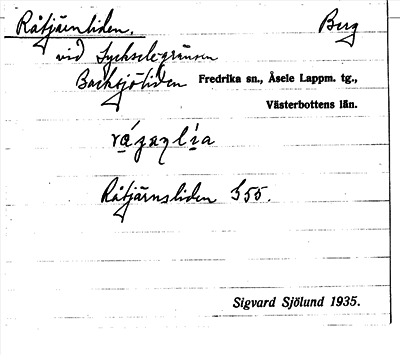 Råtjärnliden. Berg
vid Lycksele-gränsen
Backsjöliden Fredrika sn., Åsele Lappm. tg.,
Västerbottens län.
Råtjärnsliden S55.
Sigvard Sjölund 1935.